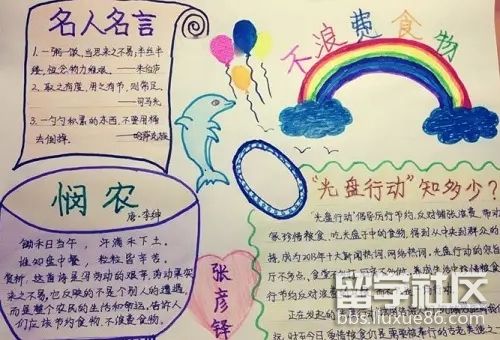 名人名言
1.一粥一饭,当思来之不易;半丝半
缕,恒念物力维艰。——朱伯庐
2.取之有度,用之有节,则常足。
——司马光
3.一勺勺积累的东西,不要用桶
去倒掉。
不浪费食物
悯农
唐·李绅
锄禾日当午,汗滴禾下土。
谁知盘中餐,粒粒皆辛苦。
赏析:这首诗是写劳动的艰辛,劳动果实
来之不易,它反映的不是个别人的遭遇,
而是整个农民的生活和命运,告诉人
们应该节约食物,不浪费食物。
张彦铎
"光盘行动"知多少?
"光盘行动"倡导厉行节约,反对铺张浪费,带动
大家珍惜粮食,吃光盘子中的食物,得到从中央到群众的
持,成为2013年十大新闻热词、网络热词,
行节约反对浪费
留学社区
bbs.liuxue86.com